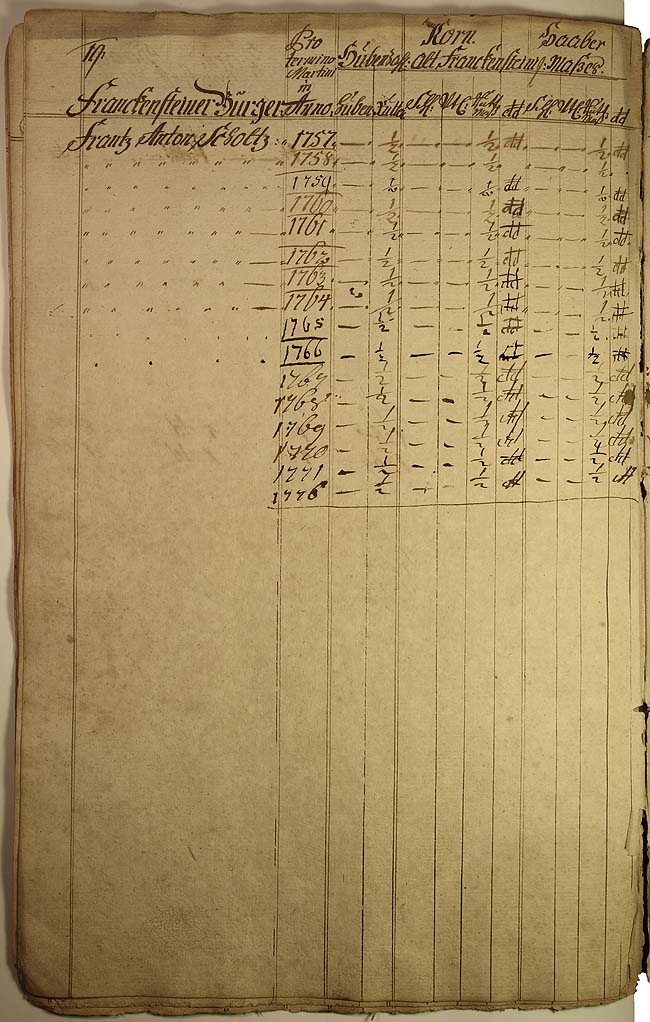 19.
Pro termino Martini in Anno.
Korn. Haaber
alt Franckenstein. Masses.
Franckensteiner Bürger
Frantz Anton Scholtz. 1757. — ½ — — ½ dd — — ½ dd
1758. — ½ — — ½ — — ½
1759. — ½ — — ½ dd — — ½ dd
1760 — ½ — — ½ dd — — ½ dd
1761 — ½ — — ½ dd — — ½ dd
1762 — ½ — — ½ dd — — ½ dd
1763 — ½ — — ½ dd — — ½ dd
1764 ½ — — ½ dd — — ½ dd
1765 — ½ — — ½ dd — — ½ dd
1766 — ½ — — ½ dd — — ½ dd
1767 — ½ — — ½ dd — — ½ dd
1768 — ½ — — ½ dd — — ½ dd
1769 — ½ — — ½ dd — — ½ dd
1770 — ½ — — ½ dd — — ½ dd
1771 — ½ — — ½ dd — — ½ dd
— ½ — — ½ dd — — ½ dd